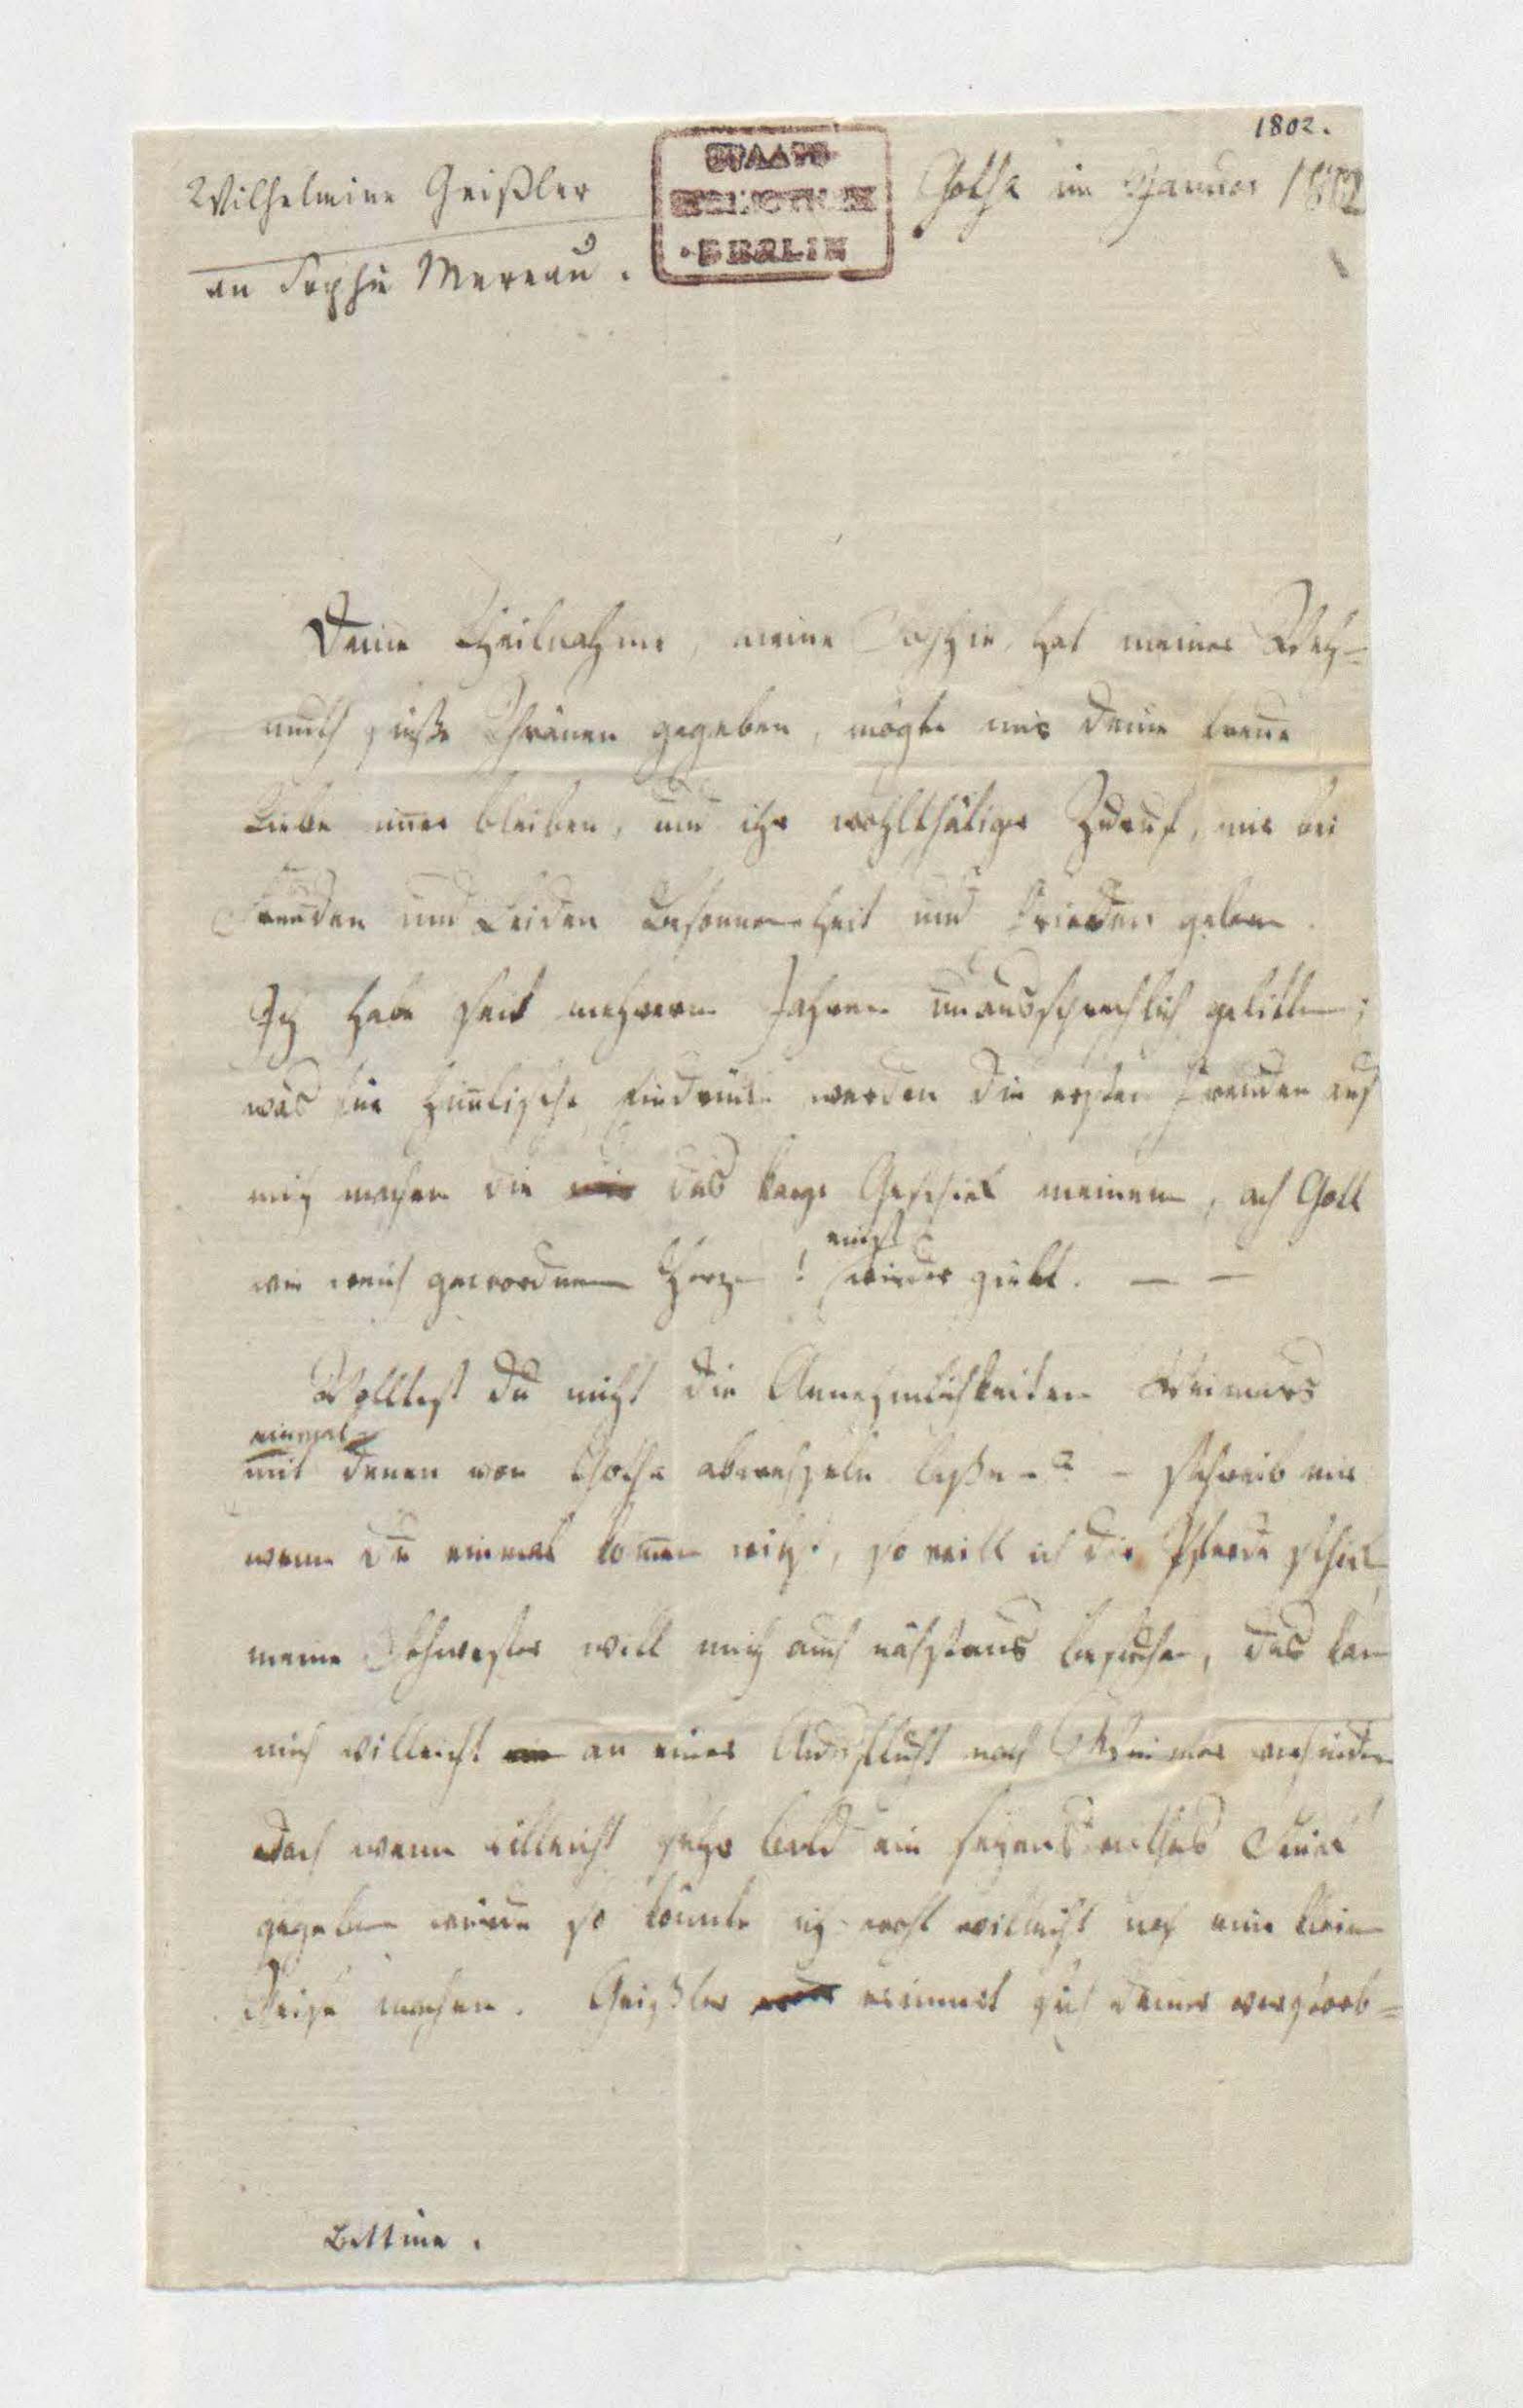 1802.
Wilhelmine Geißler
an Sophie Mereau.
STAATS
BIBLIOTHEK
BERLIN
Gotha im Januar 1802
Deine Theilnahme, meine Sophie, hat meiner Weh-
muth süße Thränen gegeben, mögte mir deine treue
Liebe im̄er bleiben, und ihr wohlthätiger Zuruf, mir bei
Freuden und Leiden Besonnenheit und Frieden geben.
Ich habe seit mehrern Jahren unaussprechlich gelitten;
was für him̄lische Eindrücke werden die ersten Freuden auf
mich machen die das karge Geschick meinem, ach Gott
wie weich gewordnem Herzen! einst wieder giebt. — —
Wolltest du nicht die Annehmlichkeiten Weimars
einmal
mit denen von Gotha abwechseln laßen? - schreib mir
wenn du einmal kom̄en willst, so will ich dir Pferde schick
meine Schwester will mich auch nächstens besuchen, das kan
mich villeicht an einer Ausflucht nach Weimar verhindern
doch wenn villeicht sehr bald ein sehenswerthes Stück
gegeben würde so könnte ich wohl villeicht noch eine kleine
Reise machen. Geißler erinnert sich deiner
Bettine.